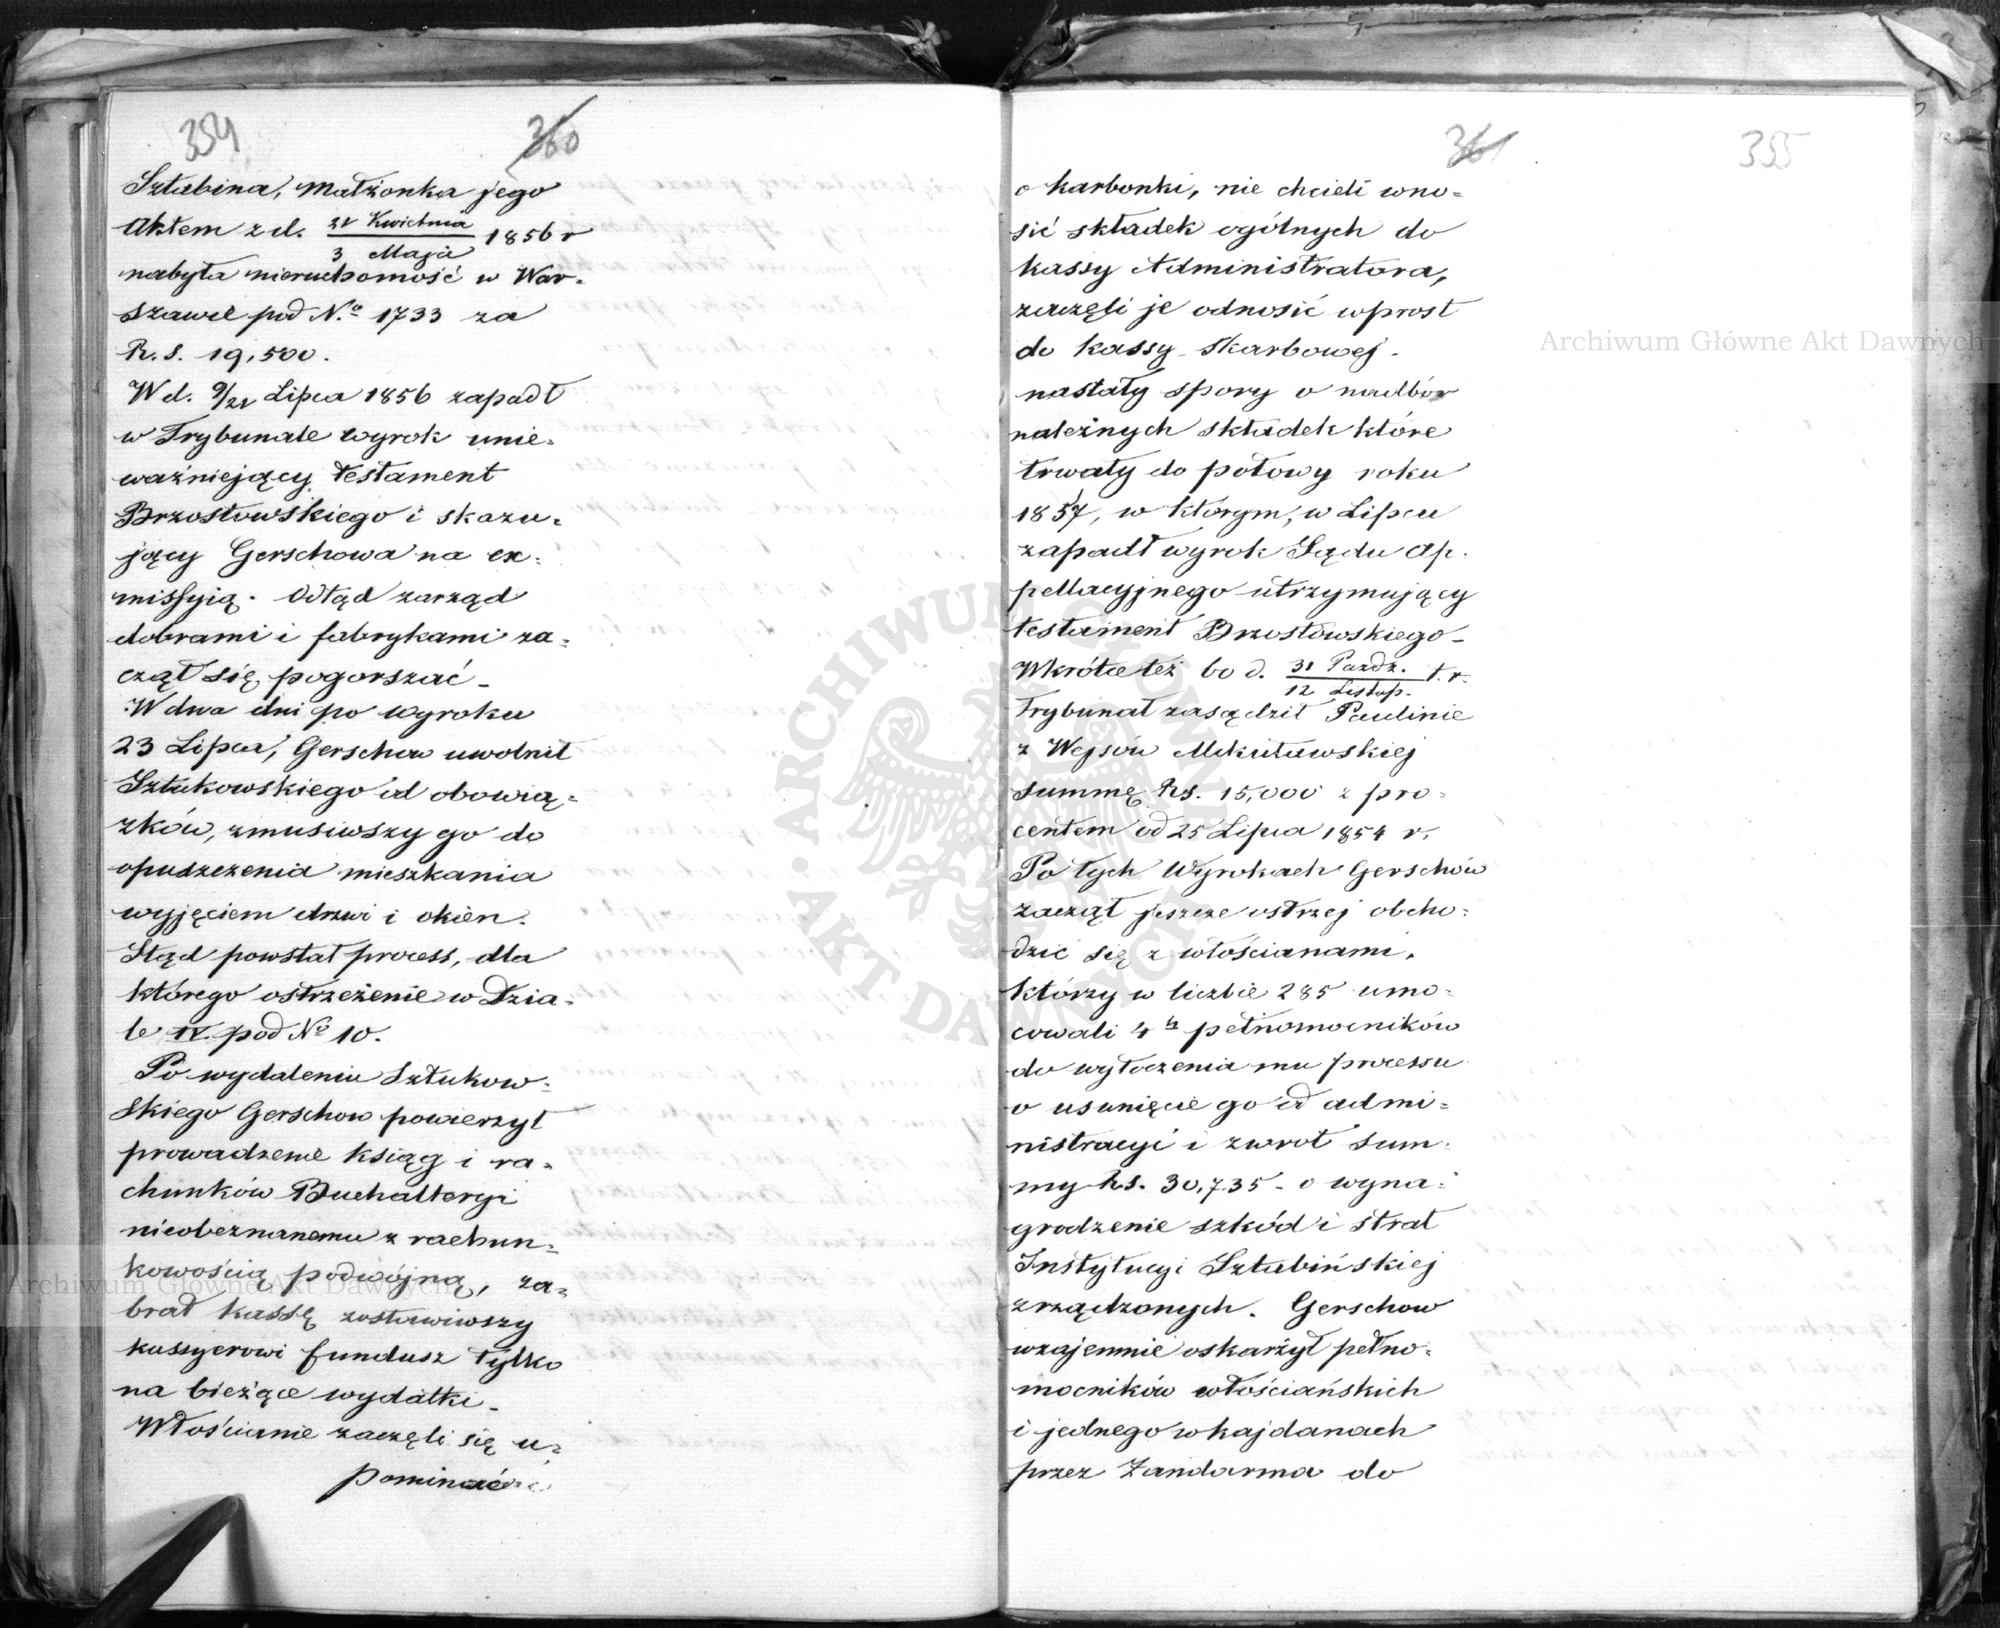 354
360
Sztabina, małżonka jego
Aktem z d. 21 Kwietnia / 3 Maja 1856 r
nabyła nieruchomość w War=
szawie pod N.o 1733 za
R. s. 19,500.
W d. 9/21 Lipca 1856 zapadł
w Trybunale wyrok unie=
ważniejący testament
Brzostowskiego i skazu=
jący Gerschowa na ex=
missyią. Odtąd zarząd
dobrami i fabrykami za=
czął się pogorszać _
W dwa dni po wyroku
23 Lipca, Gerschow uwolnił
Sztukowskiego od obowią=
zków, zmusiwszy go do
opuszczenia mieszkania
wyjęciem drzwi i okien.
Stąd powstał process, dla
którego ostrzeżenie w Dzia=
le IV. pod No 10.
Po wydaleniu Sztukow=
skiego Gerschow powierzył
prowadzenie ksiąg i ra=
chunków Buchalteryi
nieobeznanemu z rachun=
kowością podwójną, za=
brał kassę zostawiwszy
kassyerowi fundusz tylko
na bieżące wydatki _
Włościanie zaczęli się u=
pominać
361
355
o karbonki, nie chcieli wno=
sić składek ogólnych do
kassy Administratora,
zaczęli je odnosić wprost
do kassy Skarbowej.
nastały spory o nadbór
należnych składek które
trwały do połowy roku
1857, w którym, w Lipcu
zapadł wyrok Sądu Ap=
pellacyjnego utrzymujący
testament Brzostowskiego _
Wkrótce też bo d. 31 Paźdz. / 12 Listop. t. r.
Trybunał zasądził Paulinie
z Wejsów Mikutowskiej
summę Rs. 15,000 z pro=
centem od 25 Lipca 1854 r.
Po tych Wyrokach Gerschów
zaczął jeszcze ostrzej obcho=
dzić się z włościanami.
którzy w liczbie 285 umo=
cowali 4ch pełnomocników
do wytoczenia mu processu
o usunięcie go od admi=
nistracyi i zwrot sum=
my Rs. 30,735 - o wyna=
grodzenie szkód i strat
Instytucyi Sztabińskiej
zrządzonych. Gerschow
wzajemnie oskarżył pełno=
mocników włościańskich
i jednego w kajdanach
przez Żandarma do
Archiwum Główne Akt Dawnych
Archiwum Główne Akt Dawnych
ARCHIWUM GŁÓWNE AKT DAWNYCH